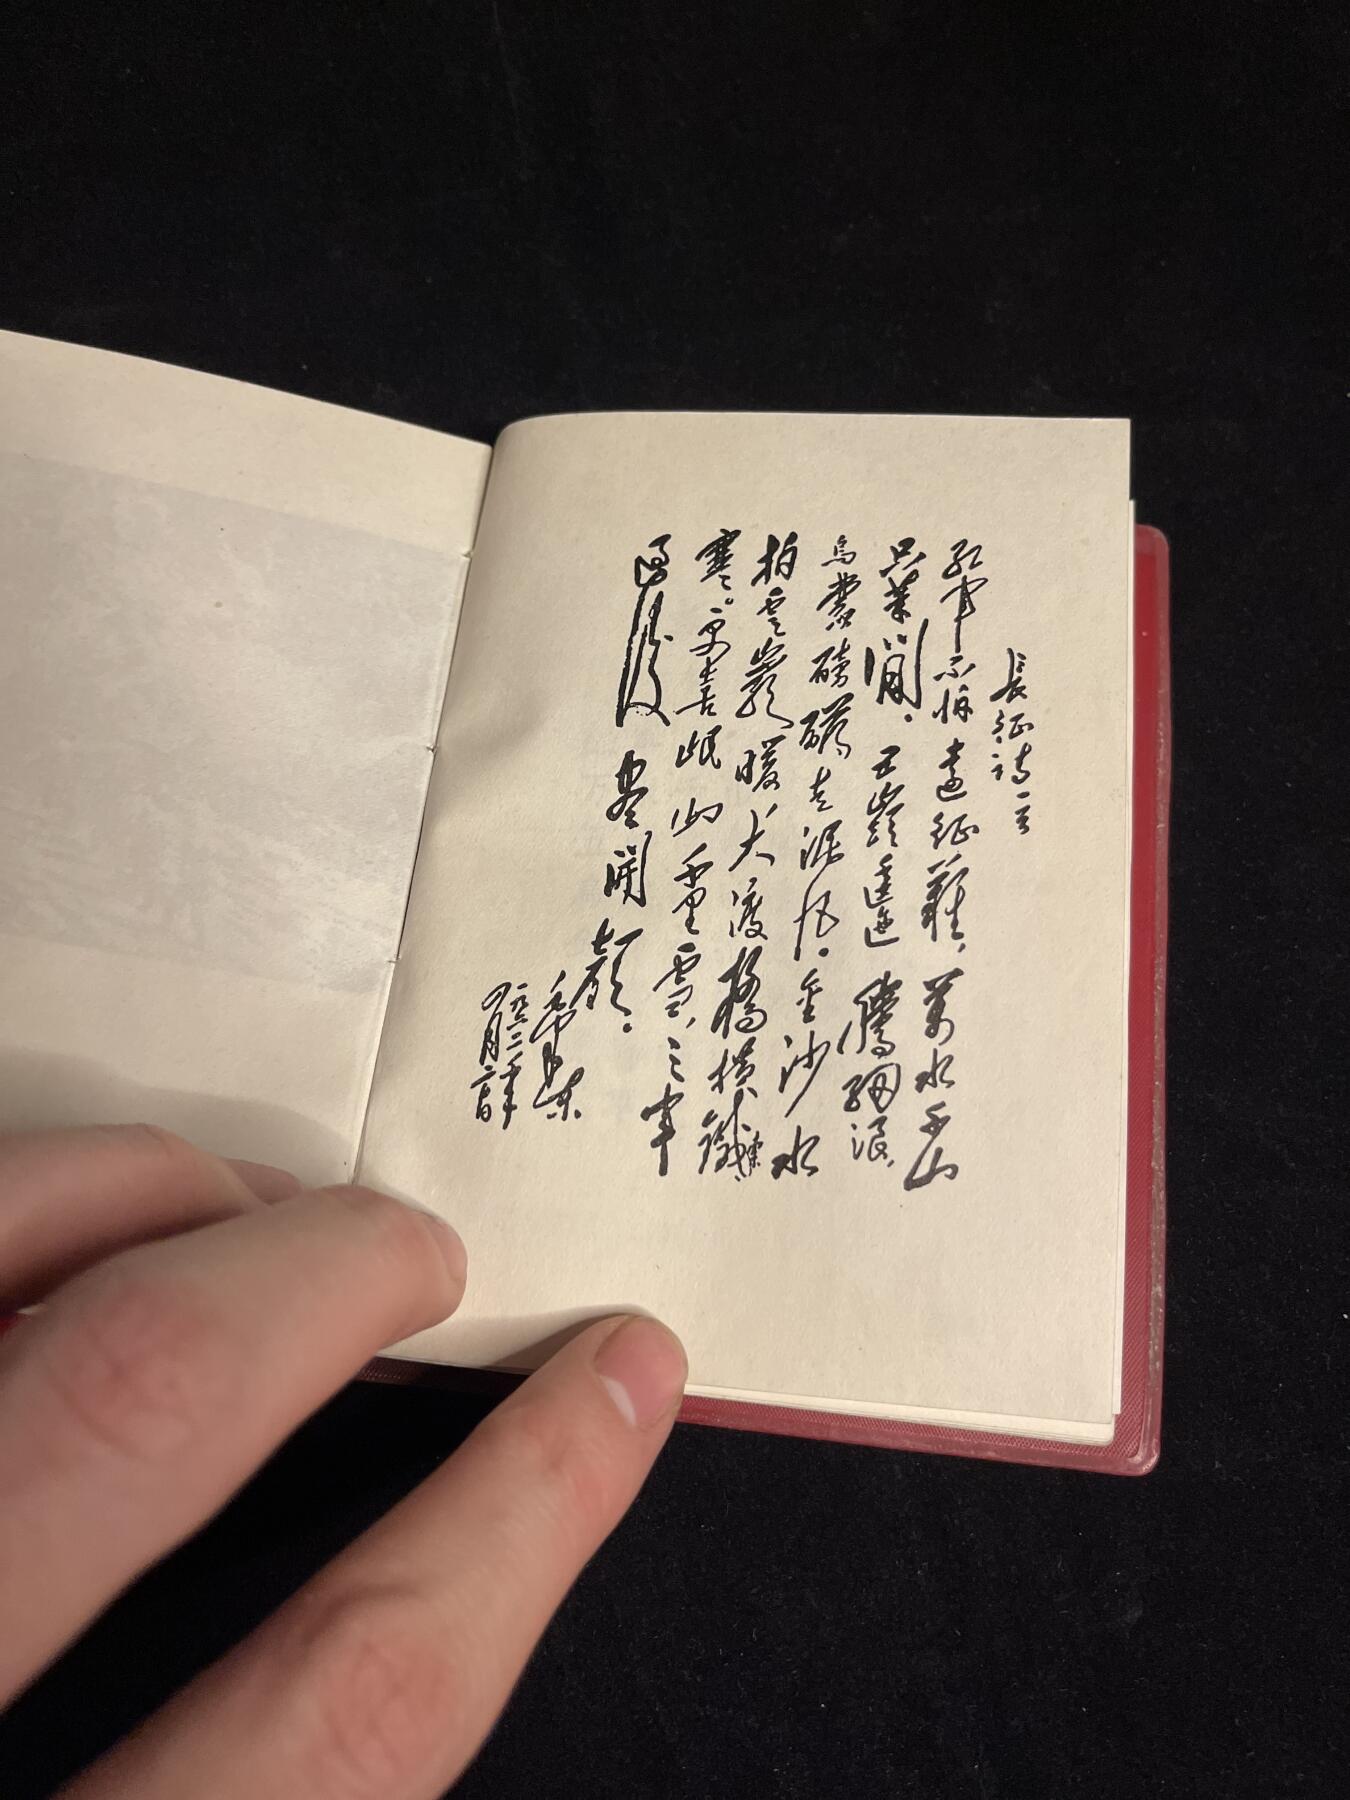 長征詩一首
红軍不怕遠征難，萬水千山
只等閒。五嶺逶迤騰細浪，
烏蒙磅礴走泥丸。金沙水
拍雲崖暖大渡橋橫鐵索
寒。更喜岷山千里雪，三軍
過後盡開顏。
毛澤東
一九六二年
四月二十日